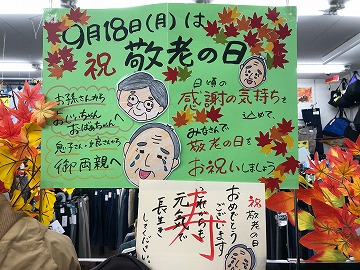 9月18日(月)は
祝 敬老の日
お孫さんから
おじいちゃん
おばあちゃんへ
息子さん・お嫁さんから
御両親へ
日頃の
感謝の気持ちを
込めて、
みなさんで
敬老の日を
お祝いしましょう
祝 敬老の日
おめでとう
ございます
これからも
元気で
長生き
してください。
寿